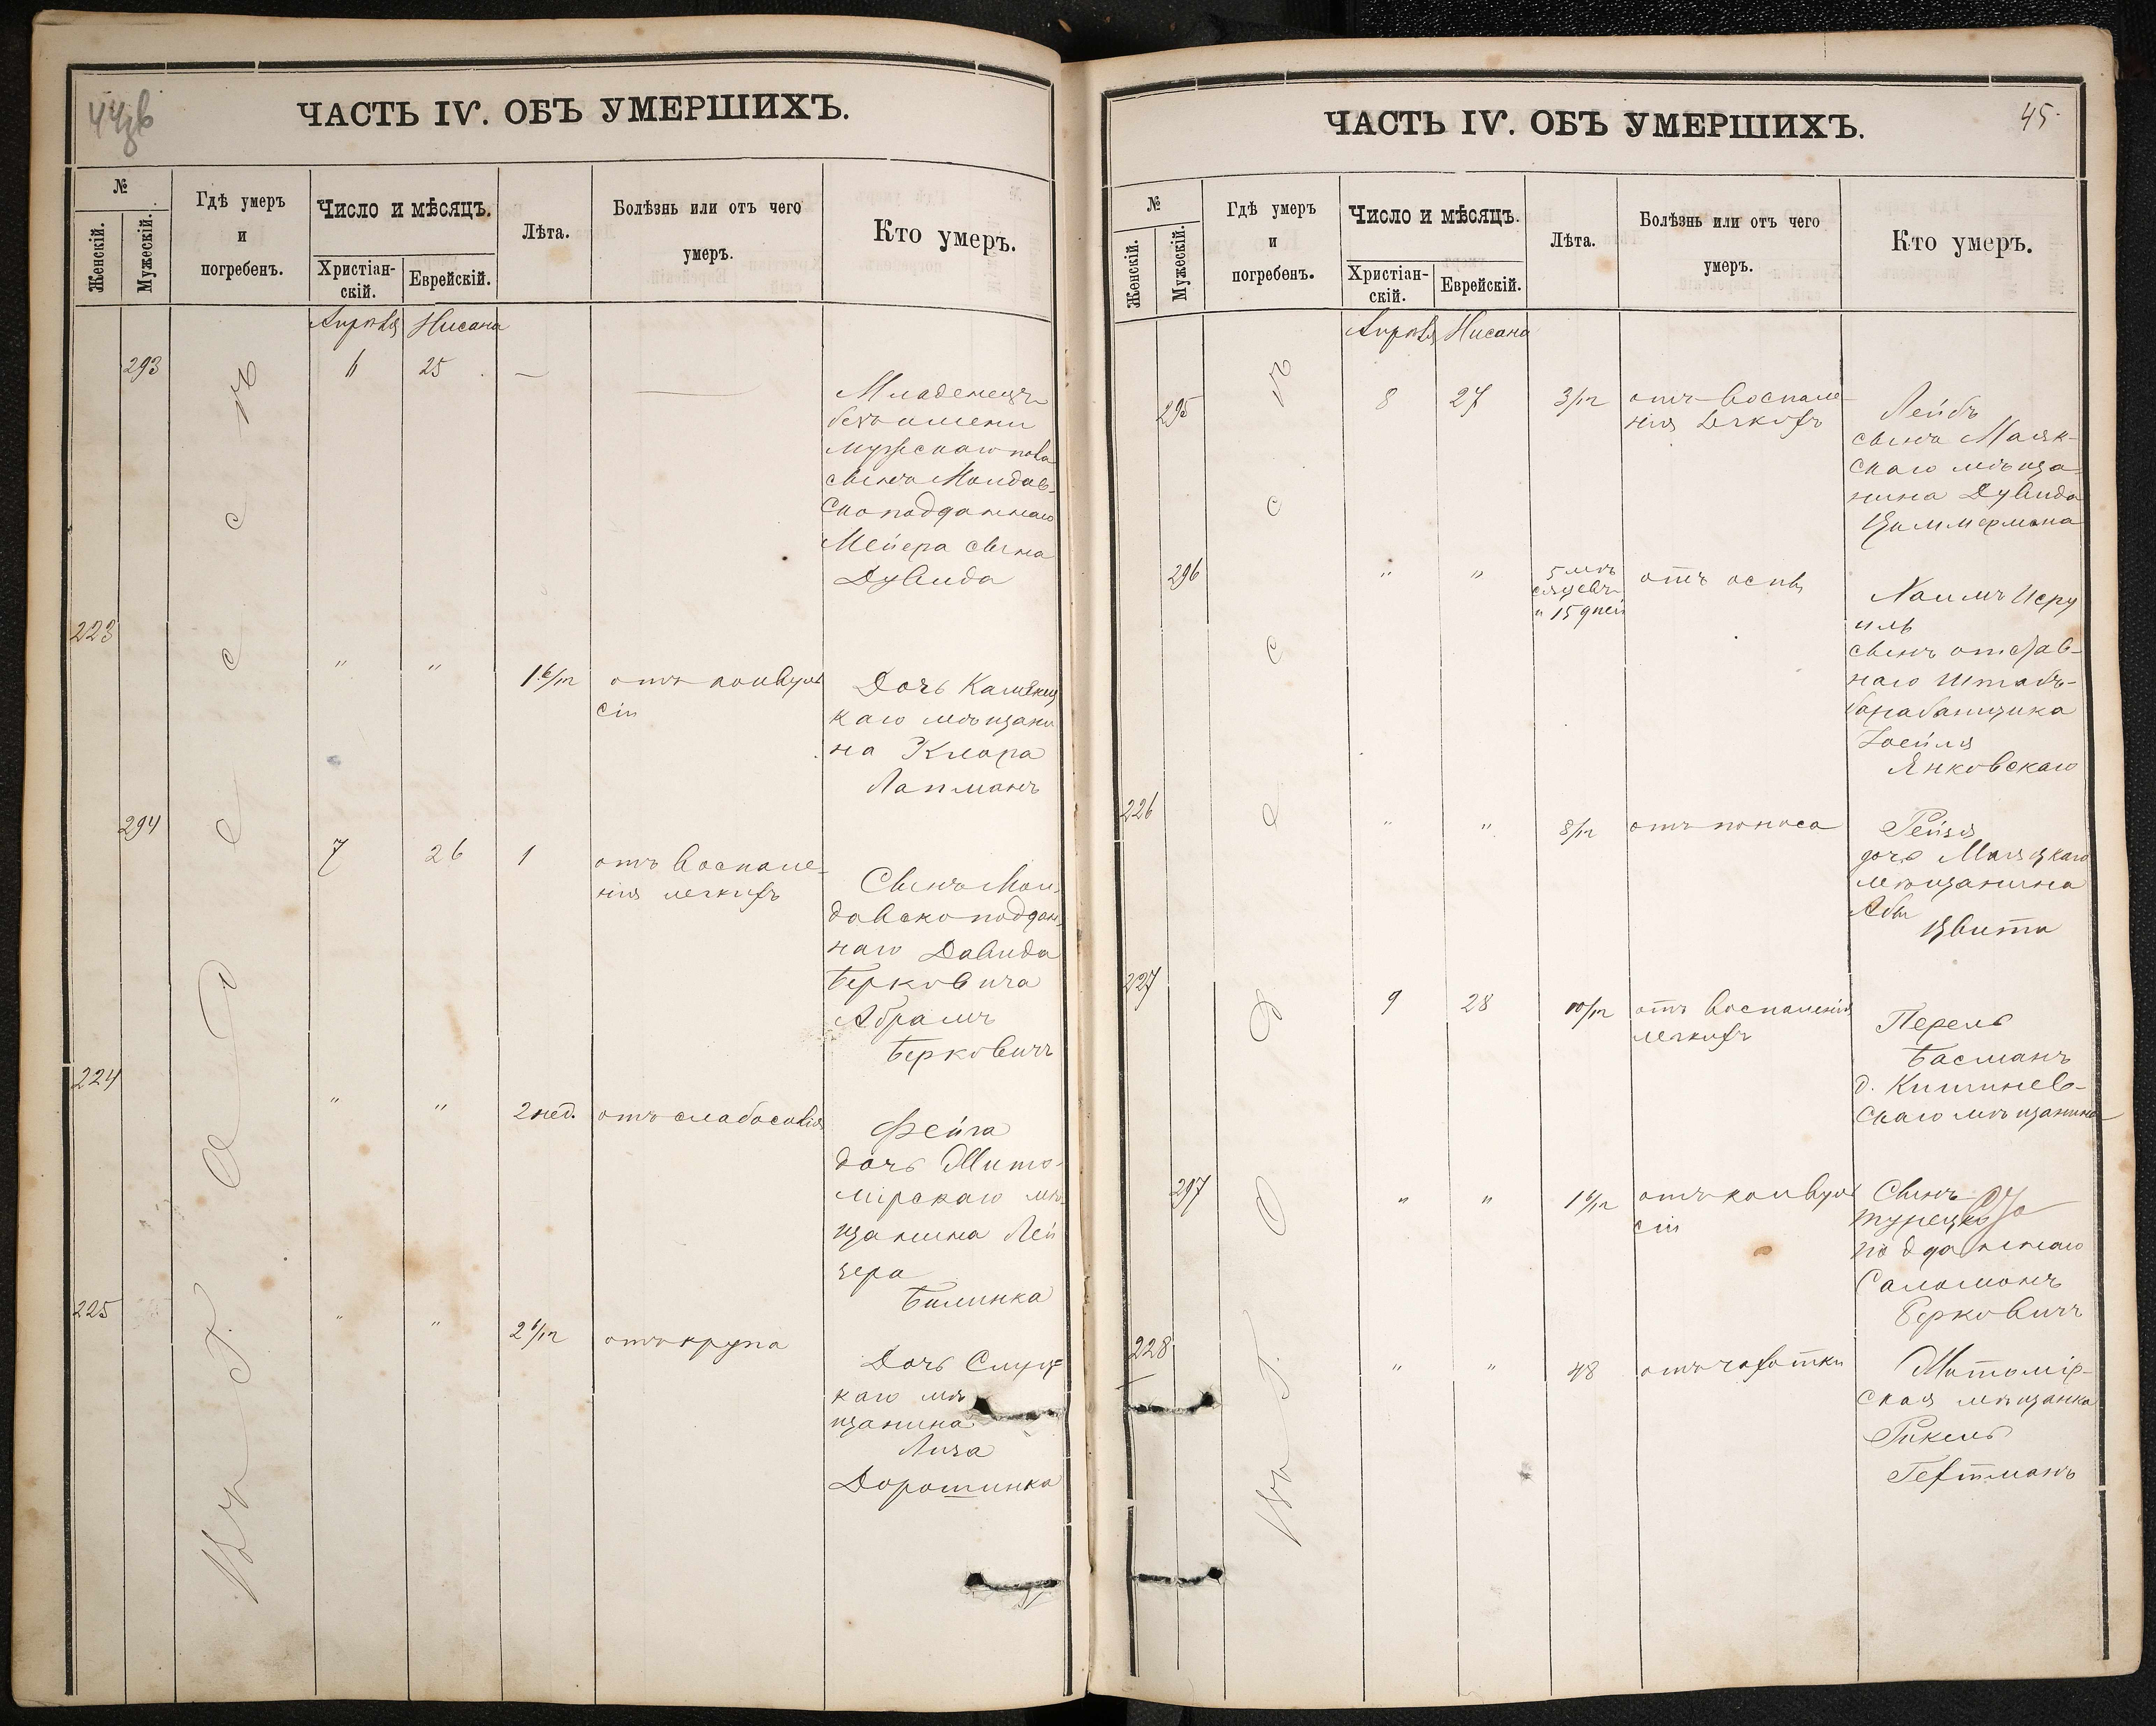 44зв
ЧАСТЬ IV. ОБЪ УМЕРШИХЪ.
№
Женскій.
Мужескій.
Гдѣ умеръ
и
погребенъ.
Число и мѣсяцъ.
Христіан-
скій.
Еврейскій.
Лѣта.
Болѣзнь или отъ чего
умеръ.
Кто умеръ.
Апрѣля Нисана
Въ г. Одессѣ
293
6
25
—
—
Младенецъ
безъ имени
мужскаго пола
сынъ Молдав-
скоподданнаго
Мейера сына
Дувида
223
"
"
1 6/12
отъ конвуль
сіи
Дочь Каменец
каго мѣщани
на Клара
Лапманъ
294
7
26
1
отъ воспале-
нія легкихъ
Сынъ Мол-
давскоподдан-
наго Давида
Берковича
Абрамъ
Берковичъ
224
"
"
2 нед.
отъ слабосилія
Фейга
дочь Жито-
мірскаго мѣ-
щанина Лей
зера
Билинка
225
"
"
2 6/12
отъ крупа
Дочь Слуц-
каго мѣ
щанина
Лиза
Дорошинка
ЧАСТЬ IV. ОБЪ УМЕРШИХЪ.
45.
№
Женскій.
Мужескій.
Гдѣ умеръ
и
погребенъ.
Число и мѣсяцъ.
Христіан-
скій.
Еврейскій.
Лѣта.
Болѣзнь или отъ чего
умеръ.
Кто умеръ.
Апрѣля Нисана
Въ г. Одессѣ
295
8
27
3/12
отъ воспале-
нія легкихъ
Лейбъ
сынъ Маяк-
скаго мѣща-
нина Дувида
Циммермана
296
"
"
5 мѣ
сяцевъ
и 15 дней
отъ оспы
Хаимъ Исру
иль
сынъ отстав-
наго Штабъ-
барабанщика
Іосиля
Янковскаго
226
"
"
8/12
отъ поноса
Рейзя
дочь Маяцкаго
мѣщанина
Абы
Цвита
227
9
28
10/12
отъ воспаленія
легкихъ
Перель
Басманъ
д. Кишинев-
скаго мѣщанина
297
"
"
1 6/12
отъ конвуль
сіи
Сынъ
турецко
подданнаго
Саломонъ
Берковичъ
228
"
"
48
отъ чахотки
Житомір-
ская мѣщанка
Рикель
Гехтманъ